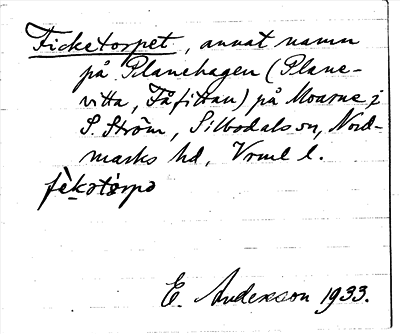 Ficketorpet, annat namn
på Planehagen (Plane-
vitta, Fåfittan) på Moarne i
S. Ström, Silbodals sn, Nord-
marks hd, Vrml l.
fèkotòrpo
E. Andersson 1933.